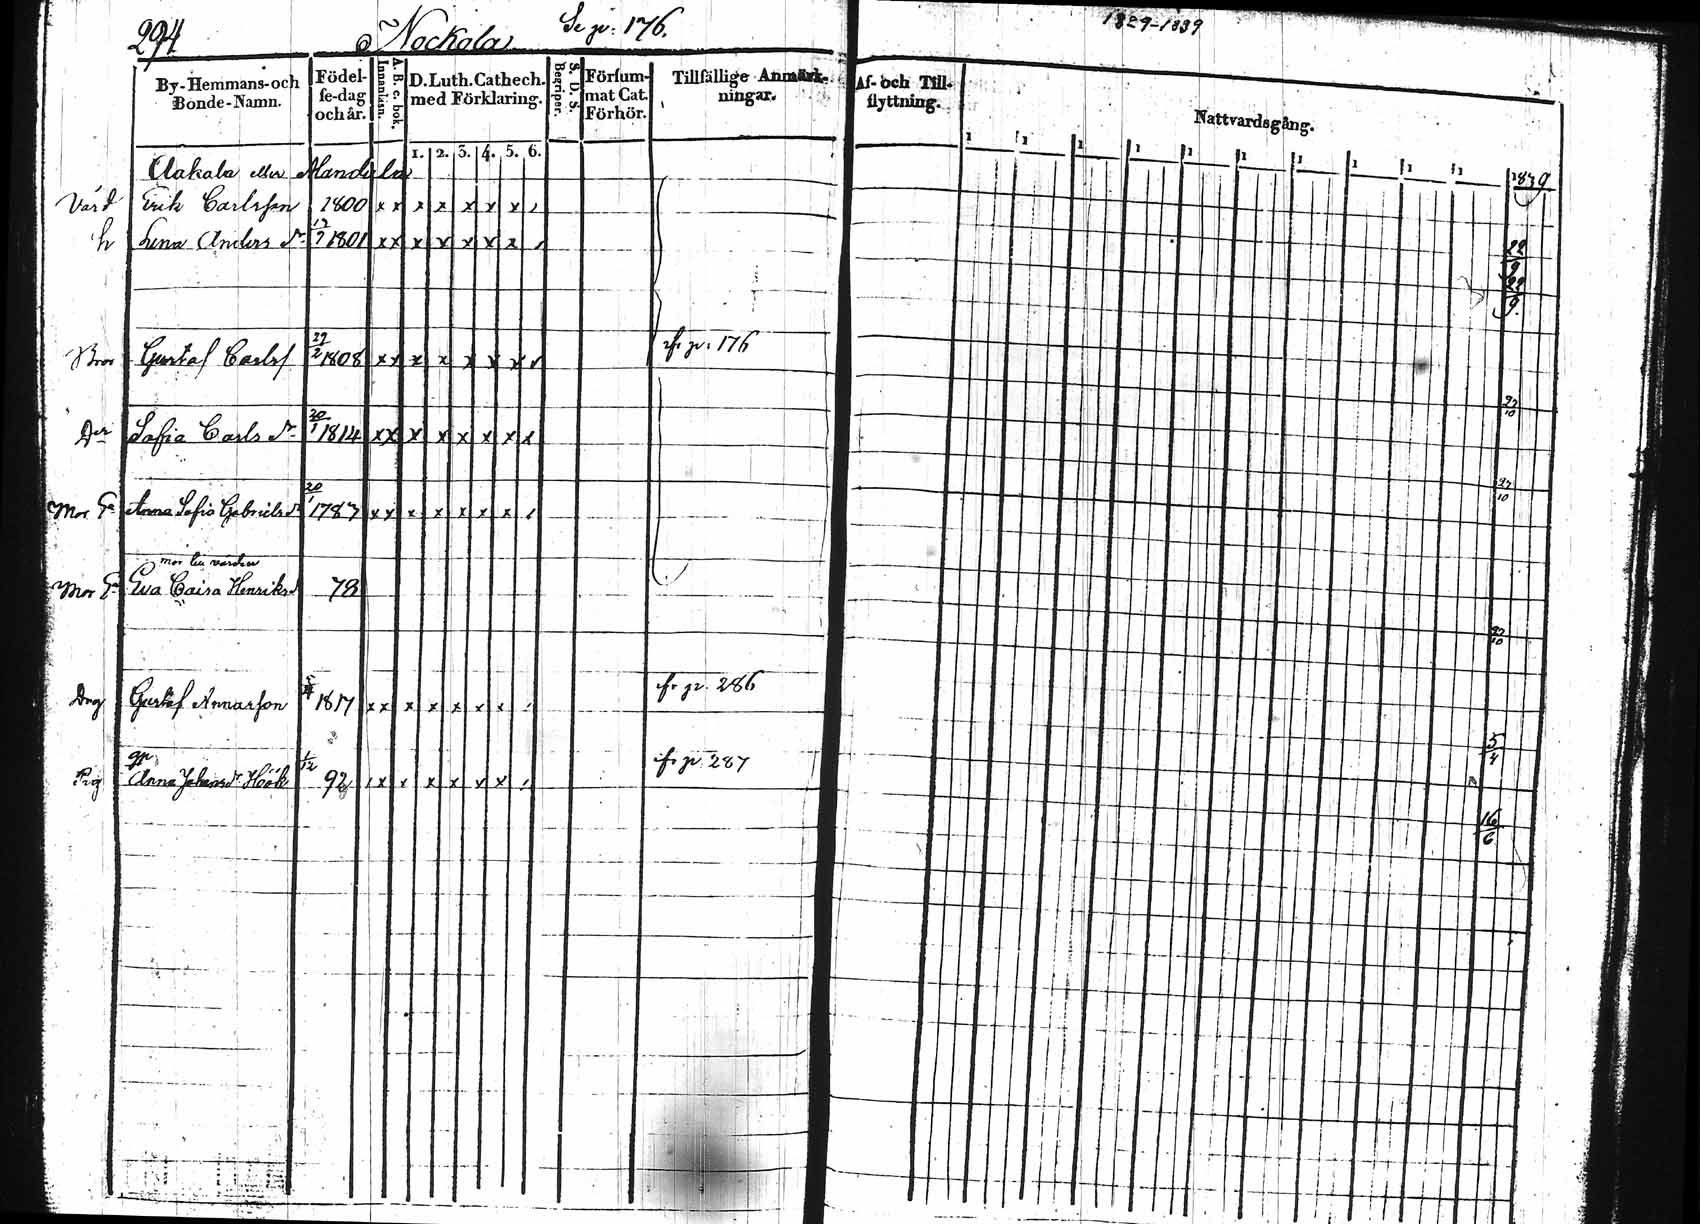 294 Nockala Se p: 176. 1829-1839
By-Hemmans-och Bonde-Namn.
Födel-se-dag och år.
Innanläsn.
A. B. c. bok.
D. Luth. Cathech. med Förklaring.
1. 2. 3. 4. 5. 6.
S. D. S. Begriper.
Försum-mat Cat. Förhör.
Tillfällige Anmärk-ningar.
Af- och Till-flyttning.
Nattvardsgång.
1 1 1 1 1 1 1 1 1 1 1839
eller Mandila
Värd Erik Carlsson 1800 x x x x x x x
h Lena Anders dr 17/7 1801 x x x x x x x 22/9
22/9.
Bror Gustaf Carlss 29/2 1808 x x x x x x x fr p: 176
27/10
Dr Sofia Carls dr 20/1 1814 x x x x x x x x
27/10
Mor Anna Sofia Gabriels dr 20/1 1787 x x x x x x x
Mor Eva Caisa Henriks d 78
27/10
Dng Gustaf Annasson 1817 x x x x x x x fr p. 286
5/4
Pig Anna Johans dr Höök 1/12 92 fr p. 287
16/6